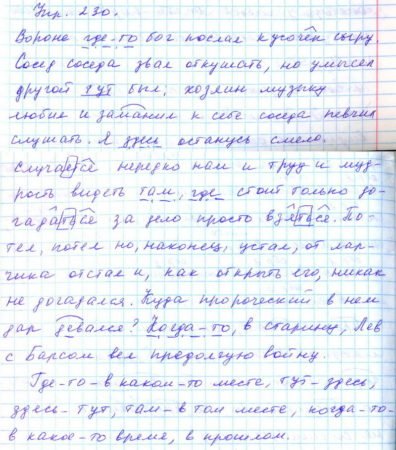 Упр. 230.
Вороне где-то бог послал кусочек сыру.
Сосед соседа звал откушать, но умысел
другой тут был; хозяин музыку
любил и заманил к себе соседа певчих
слушать. Я здесь останусь смело.
Случается нередко нам и труд и муд-
рость видеть там, где стоит только до-
гадаться за дело просто взяться. По-
тел, потел но, наконец, устал, от лар-
чика отстал и, как открыть его, никак
не догадался. Куда пророческий в нем
дар девался? Когда-то, в старину, Лев
с Барсом вел предолгую войну.
Где-то-в каком-то месте, тут-здесь,
здесь-тут, там-в том месте, когда-то-
в какое-то время, в прошлом.